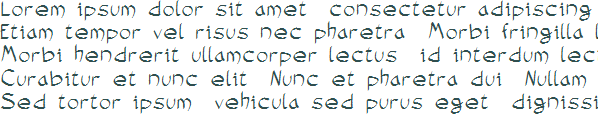 Lorem ipsum dolor sit amet consectetur adipiscing
Etiam tempor vel risus nec pharetra Morbi fringilla
Morbi hendrerit ullamcorper lectus id interdum lec
Curabitur et nunc elit Nunc et pharetra dui Nullam
Sed tortor ipsum vehicula sed purus eget dignissi